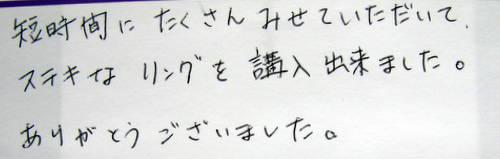 短時間に たくさん みせていただいて、
ステキな リングを 購入 出来ました。
ありがとうございました。